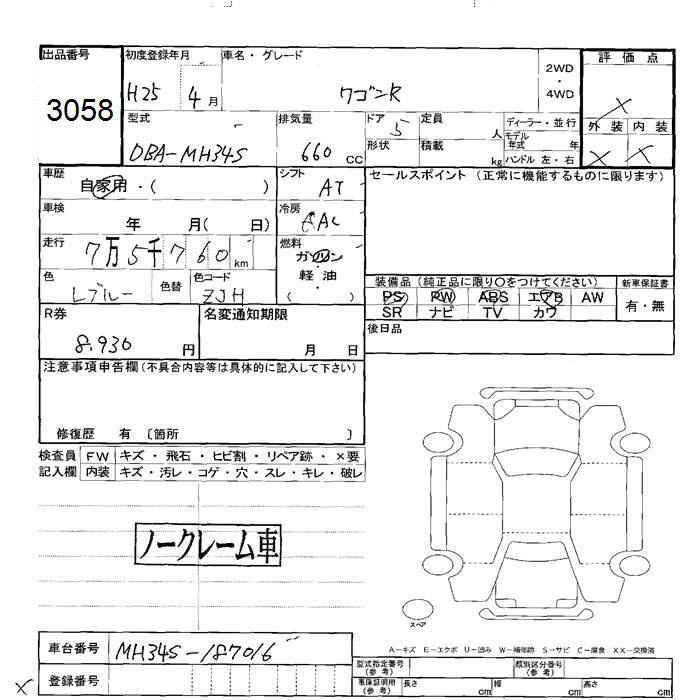 出品番号 初度登録年月 車名・グレード 2WD・4WD 評価点
3058 H25 4月 ワゴンR X
型式 排気量 ドア 定員 ディーラー・並行 外装 内装
DBA-MH34S 660cc 5 人 モデル年式 年 X X
形状 積載 kg ハンドル 左・右
車歴 自家用・( ) シフト AT セールスポイント (正常に機能するものに限ります)
車検 年 月( 日) 冷房 AAC
走行 7万5千760km 燃料 ガソリン
軽油
( )
色 Lブルー 色替 色コード ZJH
装備品 (純正品に限り○をつけてください) 新車保証書
PS PW ABS エアB AW 有・無
SR ナビ TV カワ
R券 8.930円 名変通知期限 月 日 後日品
注意事項申告欄(不具合内容等は具体的に記入して下さい)
修復歴 有 〔箇所 〕
検査員 FW キズ・飛石・ヒビ割・リペア跡・×要
記入欄 内装 キズ・汚レ・コゲ・穴・スレ・キレ・破レ
ノークレーム車
スペア
A−キズ E−エクボ U−凹み W−補修跡 S−サビ C−腐食 XX−交換済
車台番号 MH34S-187016
型式指定番号(参考) 類別区分番号(参考)
X 登録番号
車庫証明用(参考) 長さ cm 幅 cm 高さ cm